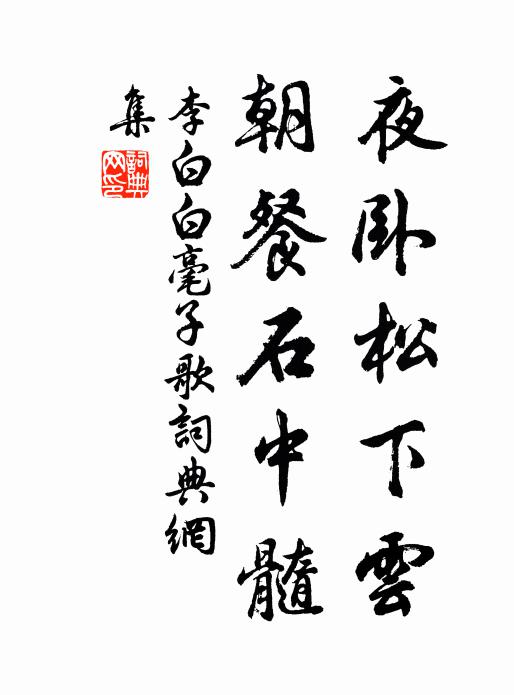 夜卧松下雲
朝餐石中髓
李白白毫子歌詞典網
集
詞典
网印